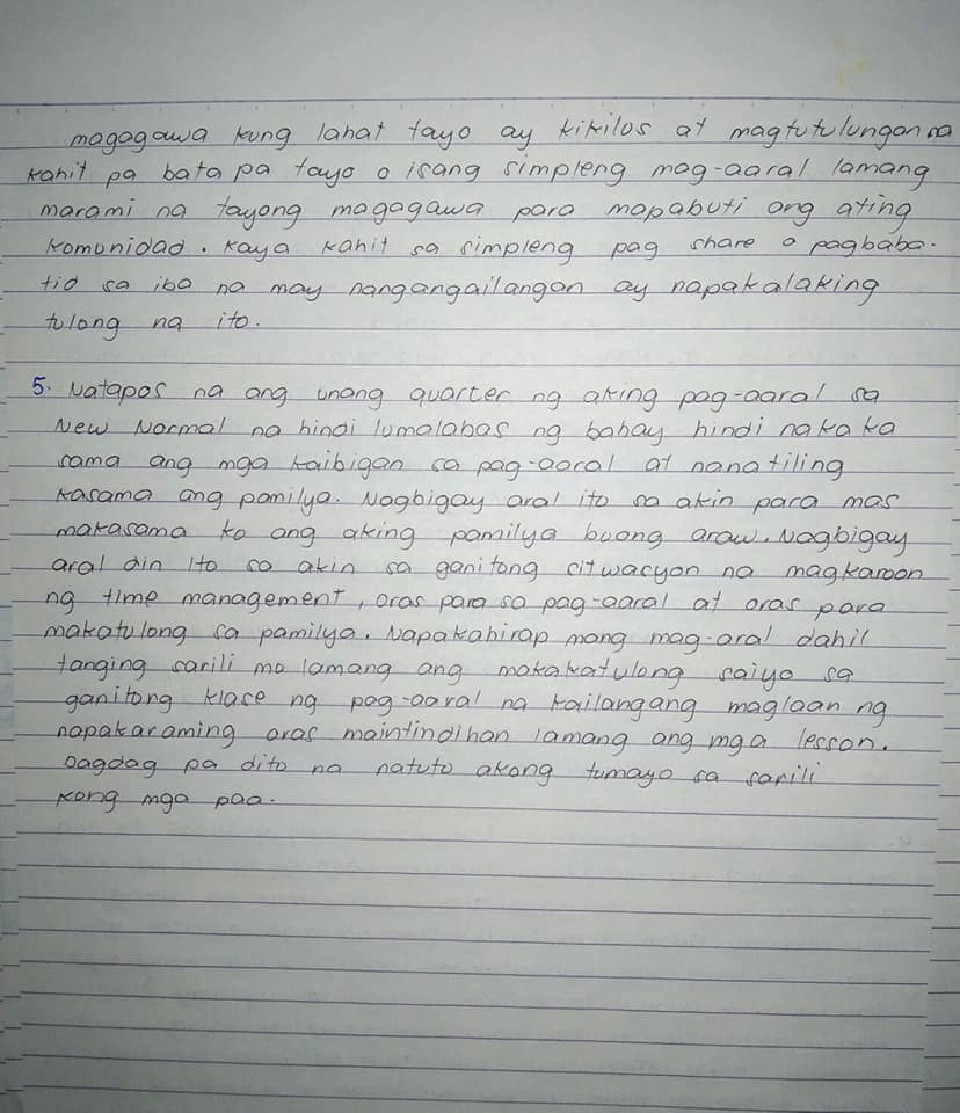 magagawa kung lahat tayo ay kikilos at magtutulungan na
kahit pa bata pa tayo o isang simpleng mag-aaral lamang
marami na tayong magagawa para mapabuti ang ating
komunidad. Kaya kahit sa simpleng pag share o pagbaba-
tid sa iba na may nangangailangan ay napakalaking
tulong na ito.
5. Natapos na ang unang quarter ng aking pag-aaral sa
New Normal na hindi lumalabas ng bahay hindi nakaka
sama ang mga kaibigan sa pag-aaral at nanatiling
kasama ang pamilya. Nagbigay aral ito sa akin para mas
makasama ko ang aking pamilya buong araw. Nagbigay
aral din ito sa akin sa ganitong sitwasyon na magkaroon
ng time management, oras para sa pag-aaral at oras para
makatulong sa pamilya. Napakahirap mang mag-aral dahil
tanging sarili mo lamang ang makakatulong saiyo sa
ganitong klase ng pag-aaral na kailangang maglaan ng
napakaraming oras maintindihan lamang ang mga lesson.
Dagdag pa dito na natuto akong tumayo sa sarili
kong mga paa.